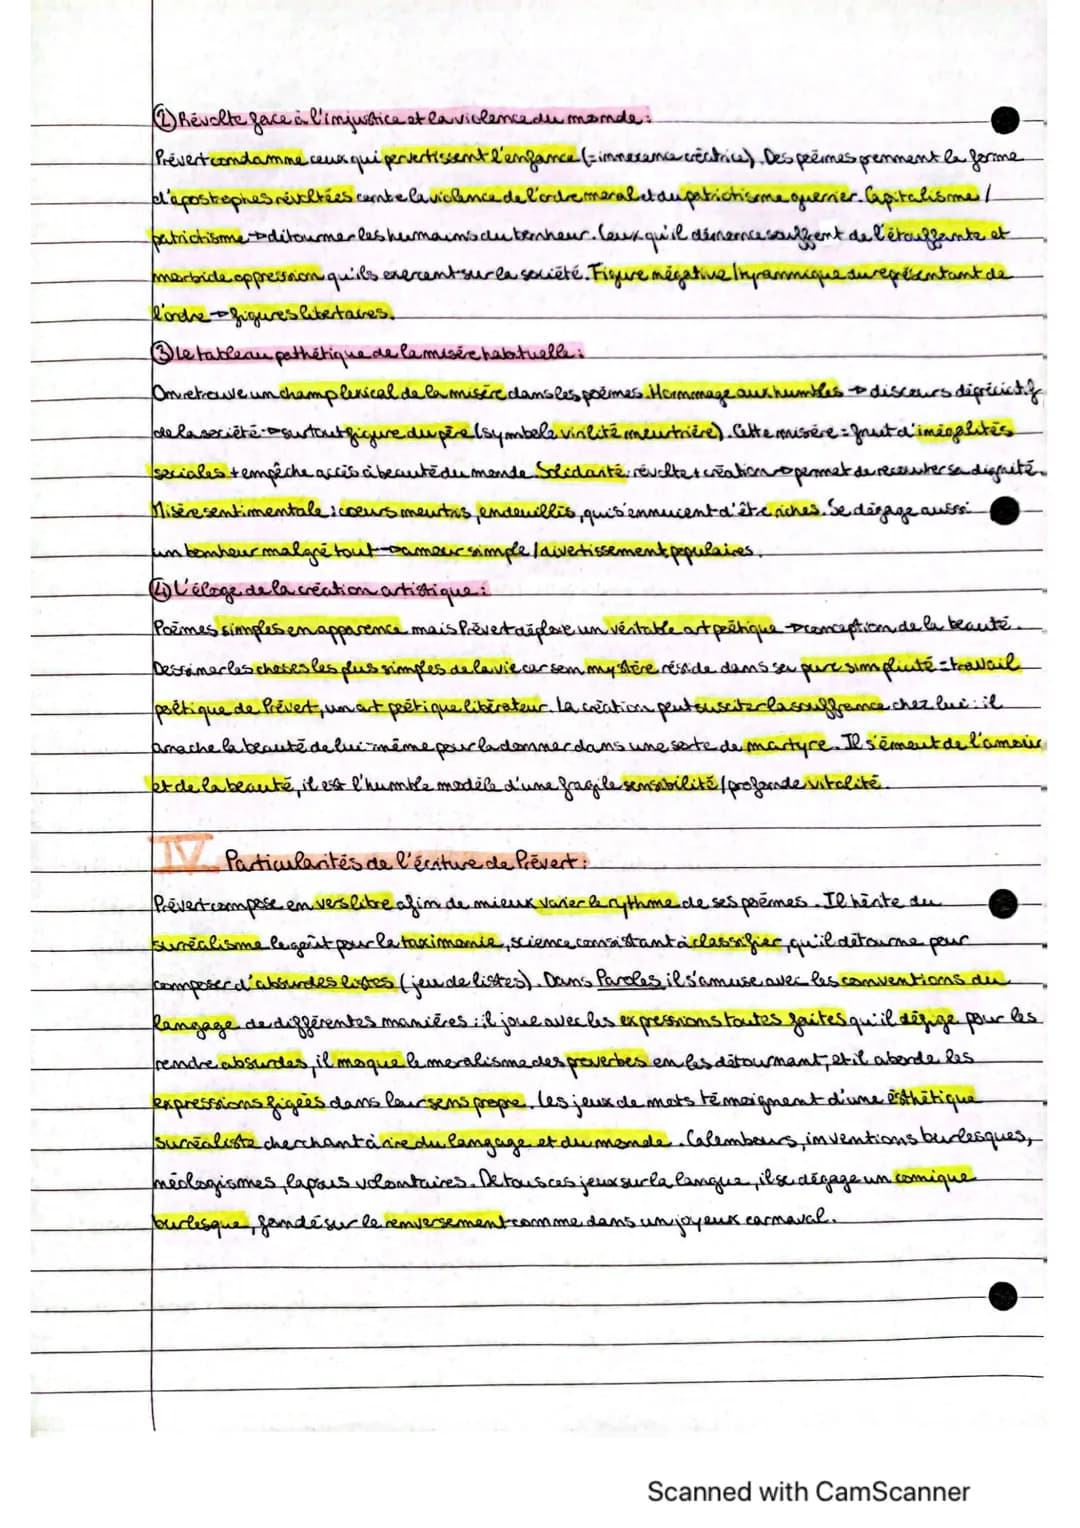 ② Révolte face à l'injustice et la violence du monde :
Prévert condamne ceux qui pervertissent l'enfance (= innocence créatrice). Des poèmes prennent la forme
d'apostrophes révoltées contre la violence de l'ordre moral et du patriotisme guerrier. Capitalisme /
patriotisme → détourner les humains du bonheur. Ceux qu'il dénonce souffrent de l'étouffante et
morbide oppression qu'ils exercent sur la société. Figure négative / tyrannique du représentant de
l'ordre → figures libertaires.
③ Le tableau pathétique de la misère habituelle :
On retrouve un champ lexical de la misère dans les poèmes. Hommage aux humbles → discours dépréciatif
de la société → surtout figure du père (symbole virilité meurtrière). Cette misère = fruit d'inégalités
sociales + empêche accès à beauté du monde. Solidarité, révolte + création → permet de recouvrer sa dignité.
Misère sentimentale : coeurs meurtris, endeuillés, qui s'ennuient d'être riches. Se dégage aussi
un bonheur malgré tout → amour simple / divertissement populaires.
④ L'éloge de la création artistique :
Poèmes simples en apparence mais Prévert déploie un véritable art poétique → conception de la beauté.
Dessiner les choses les plus simples de la vie car son mystère réside dans sa pure simplicité = travail
poétique de Prévert, un art poétique libérateur. La création peut susciter la souffrance chez lui : il
arrache la beauté de lui-même pour la donner dans une sorte de martyre. Il s'émeut de l'amour
et de la beauté, il est l'humble modèle d'une fragile sensibilité / profonde vitalité.
IV. Particularités de l'écriture de Prévert :
Prévert compose en vers libre afin de mieux varier le rythme de ses poèmes. Il hérite du
surréalisme le goût pour la taximonie, science consistant à classifier, qu'il détourne pour
composer d'absurdes listes (jeu de listes). Dans Paroles il s'amuse avec les conventions du
langage de différentes manières : il joue avec les expressions toutes faites qu'il défige pour les
rendre absurdes, il moque le moralisme des proverbes en les détournant, et il aborde les
expressions figées dans leur sens propre. Les jeux de mots témoignent d'une esthétique
surréaliste cherchant à rire du langage et du monde. Calembours, inventions burlesques,
néologismes, lapsus volontaires. De tous ces jeux sur la langue, il se dégage un comique
burlesque, fondé sur le renversement comme dans un joyeux carnaval.
Scanned with CamScanner